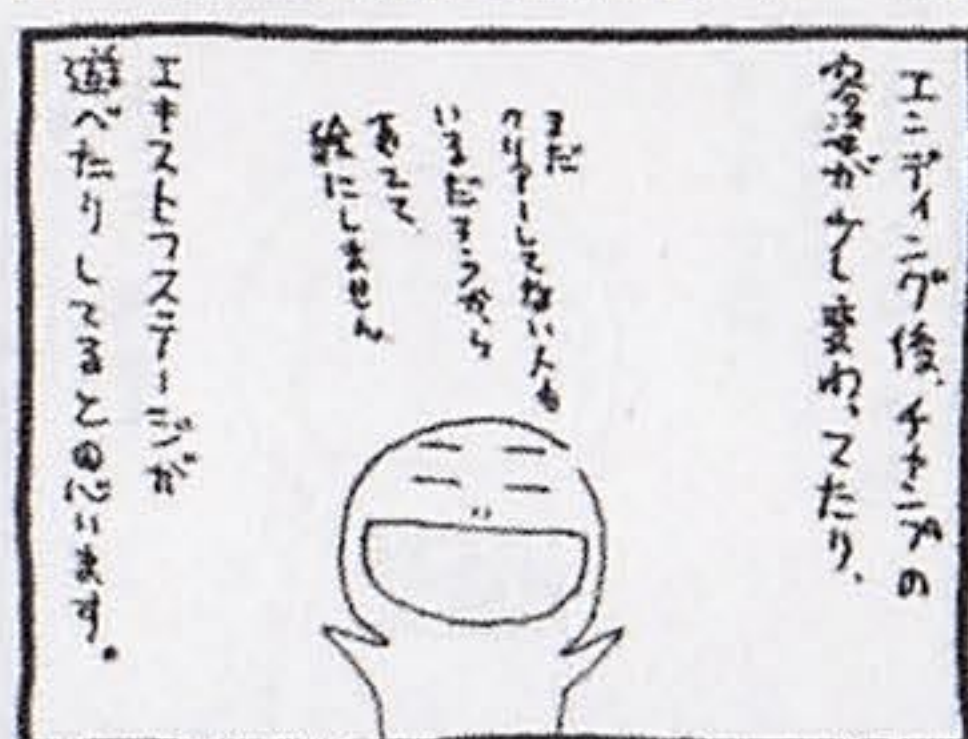 エンディング後、チャンプの
容姿が少し変わってたり、
まだ
クリアーしてない人も
いるだろうから
あえて
絵にしません
エキストラステージが
遊べたりしると思います。